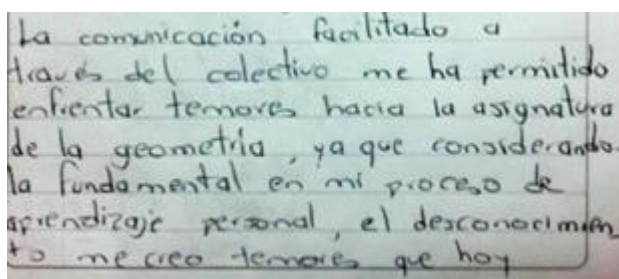 La comunicación facilitado a
través del colectivo me ha permitido
enfrentar temores hacia la asignatura
de la geometría, ya que considerando
la fundamental en mi proceso de
aprendizaje personal, el desconocimien
to me creo temores que hoy